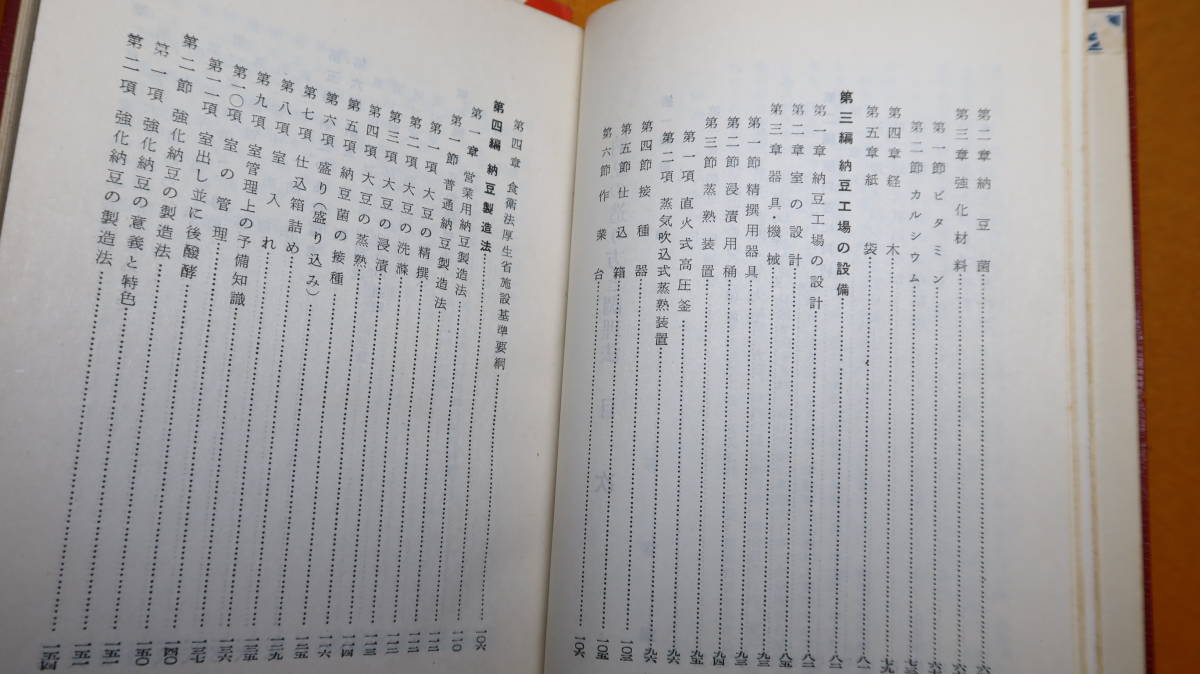 第二章 納豆菌
第三章 強化材料
第一節 ビタミン
第二節 カルシウム
第四章 経木 七九
第五章 紙袋 八一
第三編 納豆工場の設備
第一章 納豆工場の設計 八二
第二章 室の設計 八五
第三章 器具・機械 九三
第一節 精撰用器具 九三
第二節 浸漬用桶 九四
第三節 蒸熟装置 九五
第一項 直火式高圧釜 九六
第二項 蒸気吹込式蒸熟装置 九六
第四節 接種器
第五節 仕込箱 一〇三
第六節 作業台 一〇五
第四章 食衛法厚生省施設基準要綱 一〇六
第四編 納豆製造法
第一章 営業用納豆製造法 一一〇
第一節 普通納豆製造法
第一項 大豆の精撰
第二項 大豆の洗滌
第三項 大豆の浸漬
第四項 大豆の蒸熟
第五項 納豆菌の接種 一一四
第六項 盛り(盛り込み) 一一六
第七項 仕込箱詰め 一二五
第八項 室入れ 一二九
第九項 室管理上の予備知識 一三五
第一〇項 室の管理 一三六
第一一項 室出し並に後醱酵 一三七
第二節 強化納豆の製造法 一四〇
第一項 強化納豆の意義と特色 一五〇
第二項 強化納豆の製造法